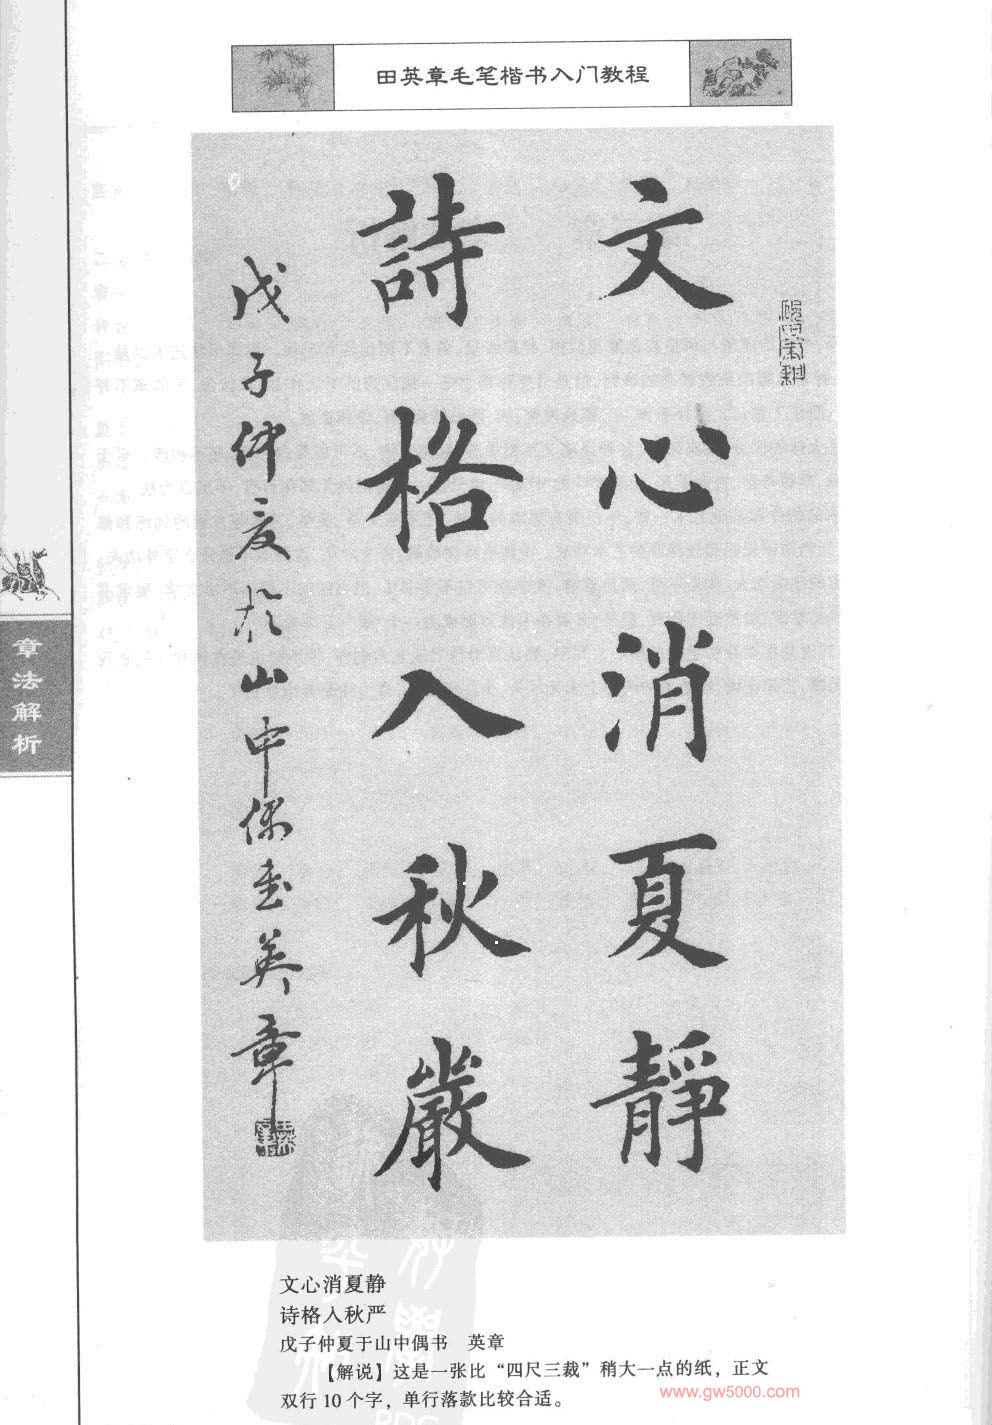 田英章毛笔楷书入门教程
文心消夏靜
詩格入秋嚴
戊子仲夏於山中偶書英章
章法解析
文心消夏静
诗格入秋严
戊子仲夏于山中偶书　英章
【解说】这是一张比“四尺三裁”稍大一点的纸，正文
双行10个字，单行落款比较合适。
www.gw5000.com